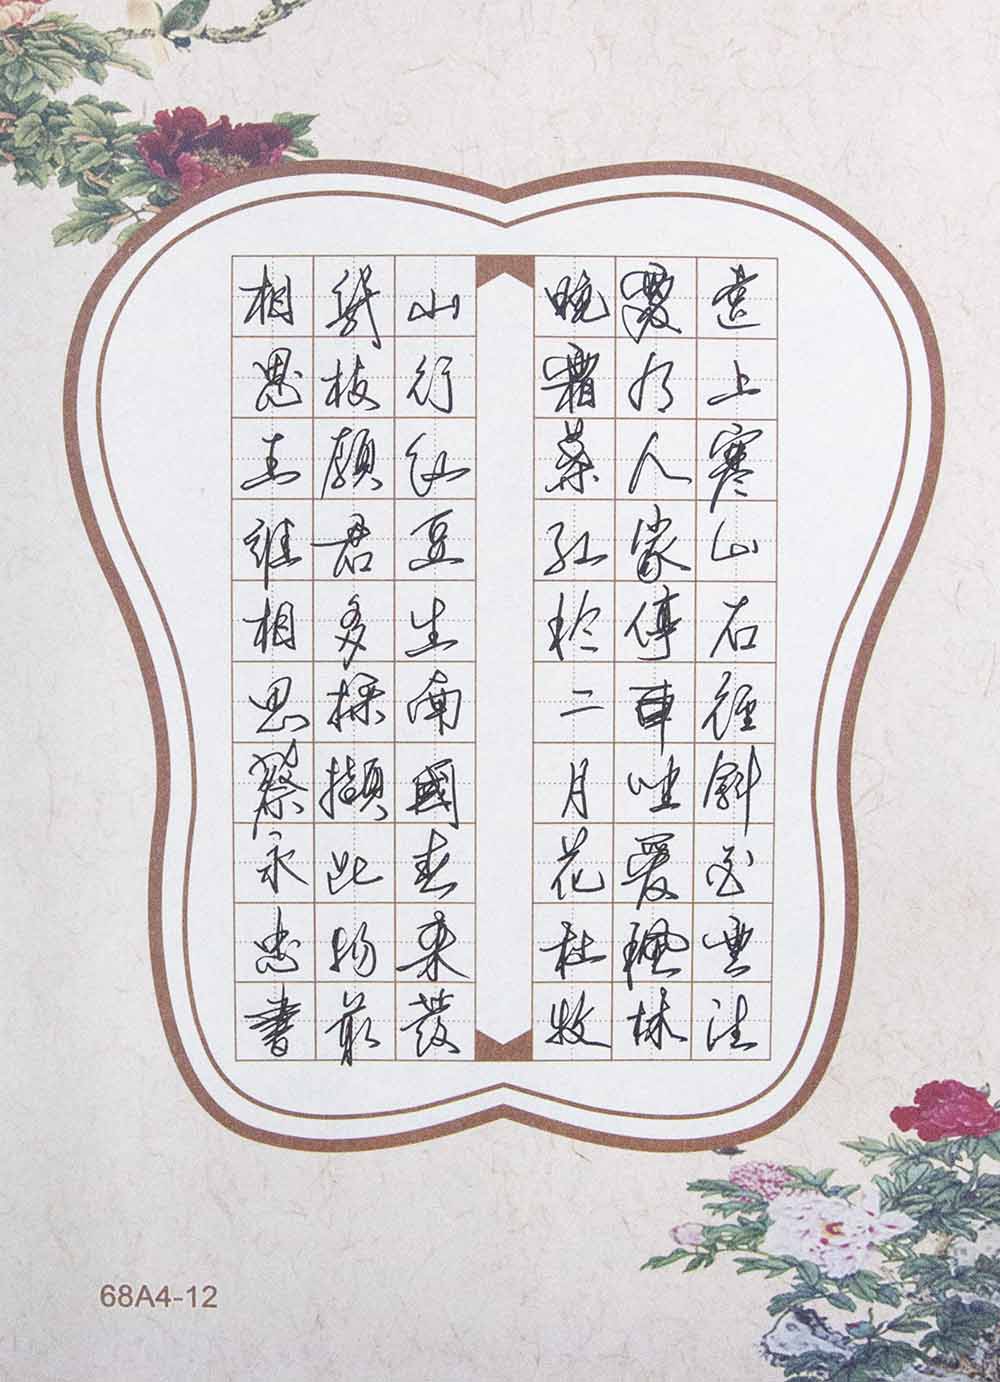 遠上寒山石徑斜白雲生
處有人家停車坐愛楓林
晚霜葉紅於二月花杜牧
山行紅豆生南國春來發
幾枝願君多採擷此物最
相思王維相思蔡永忠書
68A4-12